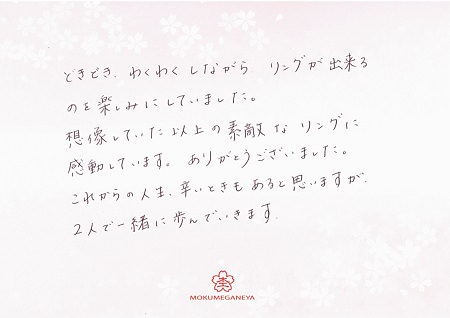 どきどき、わくわくしながら、リングが出来る
のを楽しみにしていました。
想像していた以上の素敵なリングに
感動しています。ありがとうございました。
これからの人生、辛いときもあると思いますが、
2人で一緒に歩んでいきます。
MOKUMEGANEYA